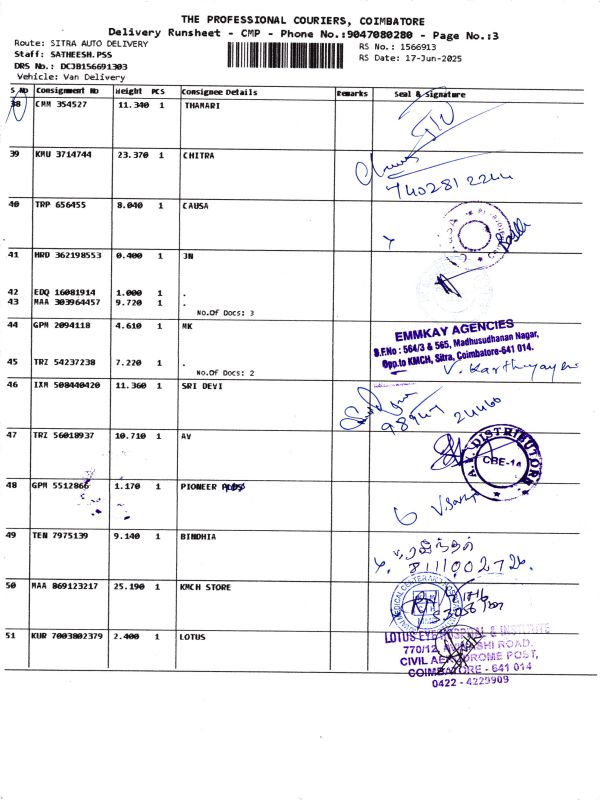 THE PROFESSIONAL COURIERS, COIMBATORE
Delivery Runsheet - CMP - Phone No.:9047080280 - Page No.:3
Route: SITRA AUTO DELIVERY
RS No.: 1566913
Staff: SATHEESH.PSS
RS Date: 17-Jun-2025
DRS No.: DCJB156691303
Vehicle: Van Delivery
S.No Consignment No Weight PCS Consignee Details Remarks Seal & Signature
38 CMM 354527 11.340 1 THAMARI
39 KMU 3714744 23.370 1 CHITRA
7402812244
40 TRP 656455 8.040 1 CAUSA
41 HRD 362198553 0.400 1 JN
42 EDQ 16081914 1.000 1 .
43 MAA 303964457 9.720 1 .
No.Of Docs: 3
44 GPM 2094118 4.610 1 MK
EMMKAY AGENCIES
S.F.No : 564/3 & 565, Madhusudhanan Nagar,
Opp.to KMCH, Sitra, Coimbatore-641 014.
45 TRZ 54237238 7.220 1 .
V. Karthyayeni
No.Of Docs: 2
46 IXM 508440420 11.360 1 SRI DEVI
98947 24460
47 TRZ 56018937 10.710 1 AV
A.V. DISTRIBUTORS
CBE-14
48 GPM 5512866 1.170 1 PIONEER
49 TEN 7975139 9.140 1 BINDHIA
8111002726.
50 MAA 869123217 25.190 1 KMCH STORE
51 KUR 7003802379 2.400 1 LOTUS
LOTUS EYE HOSPITAL & INSTITUTE
770/12, AVINASHI ROAD,
CIVIL AERODROME POST,
COIMBATORE - 641 014
0422 - 4229909